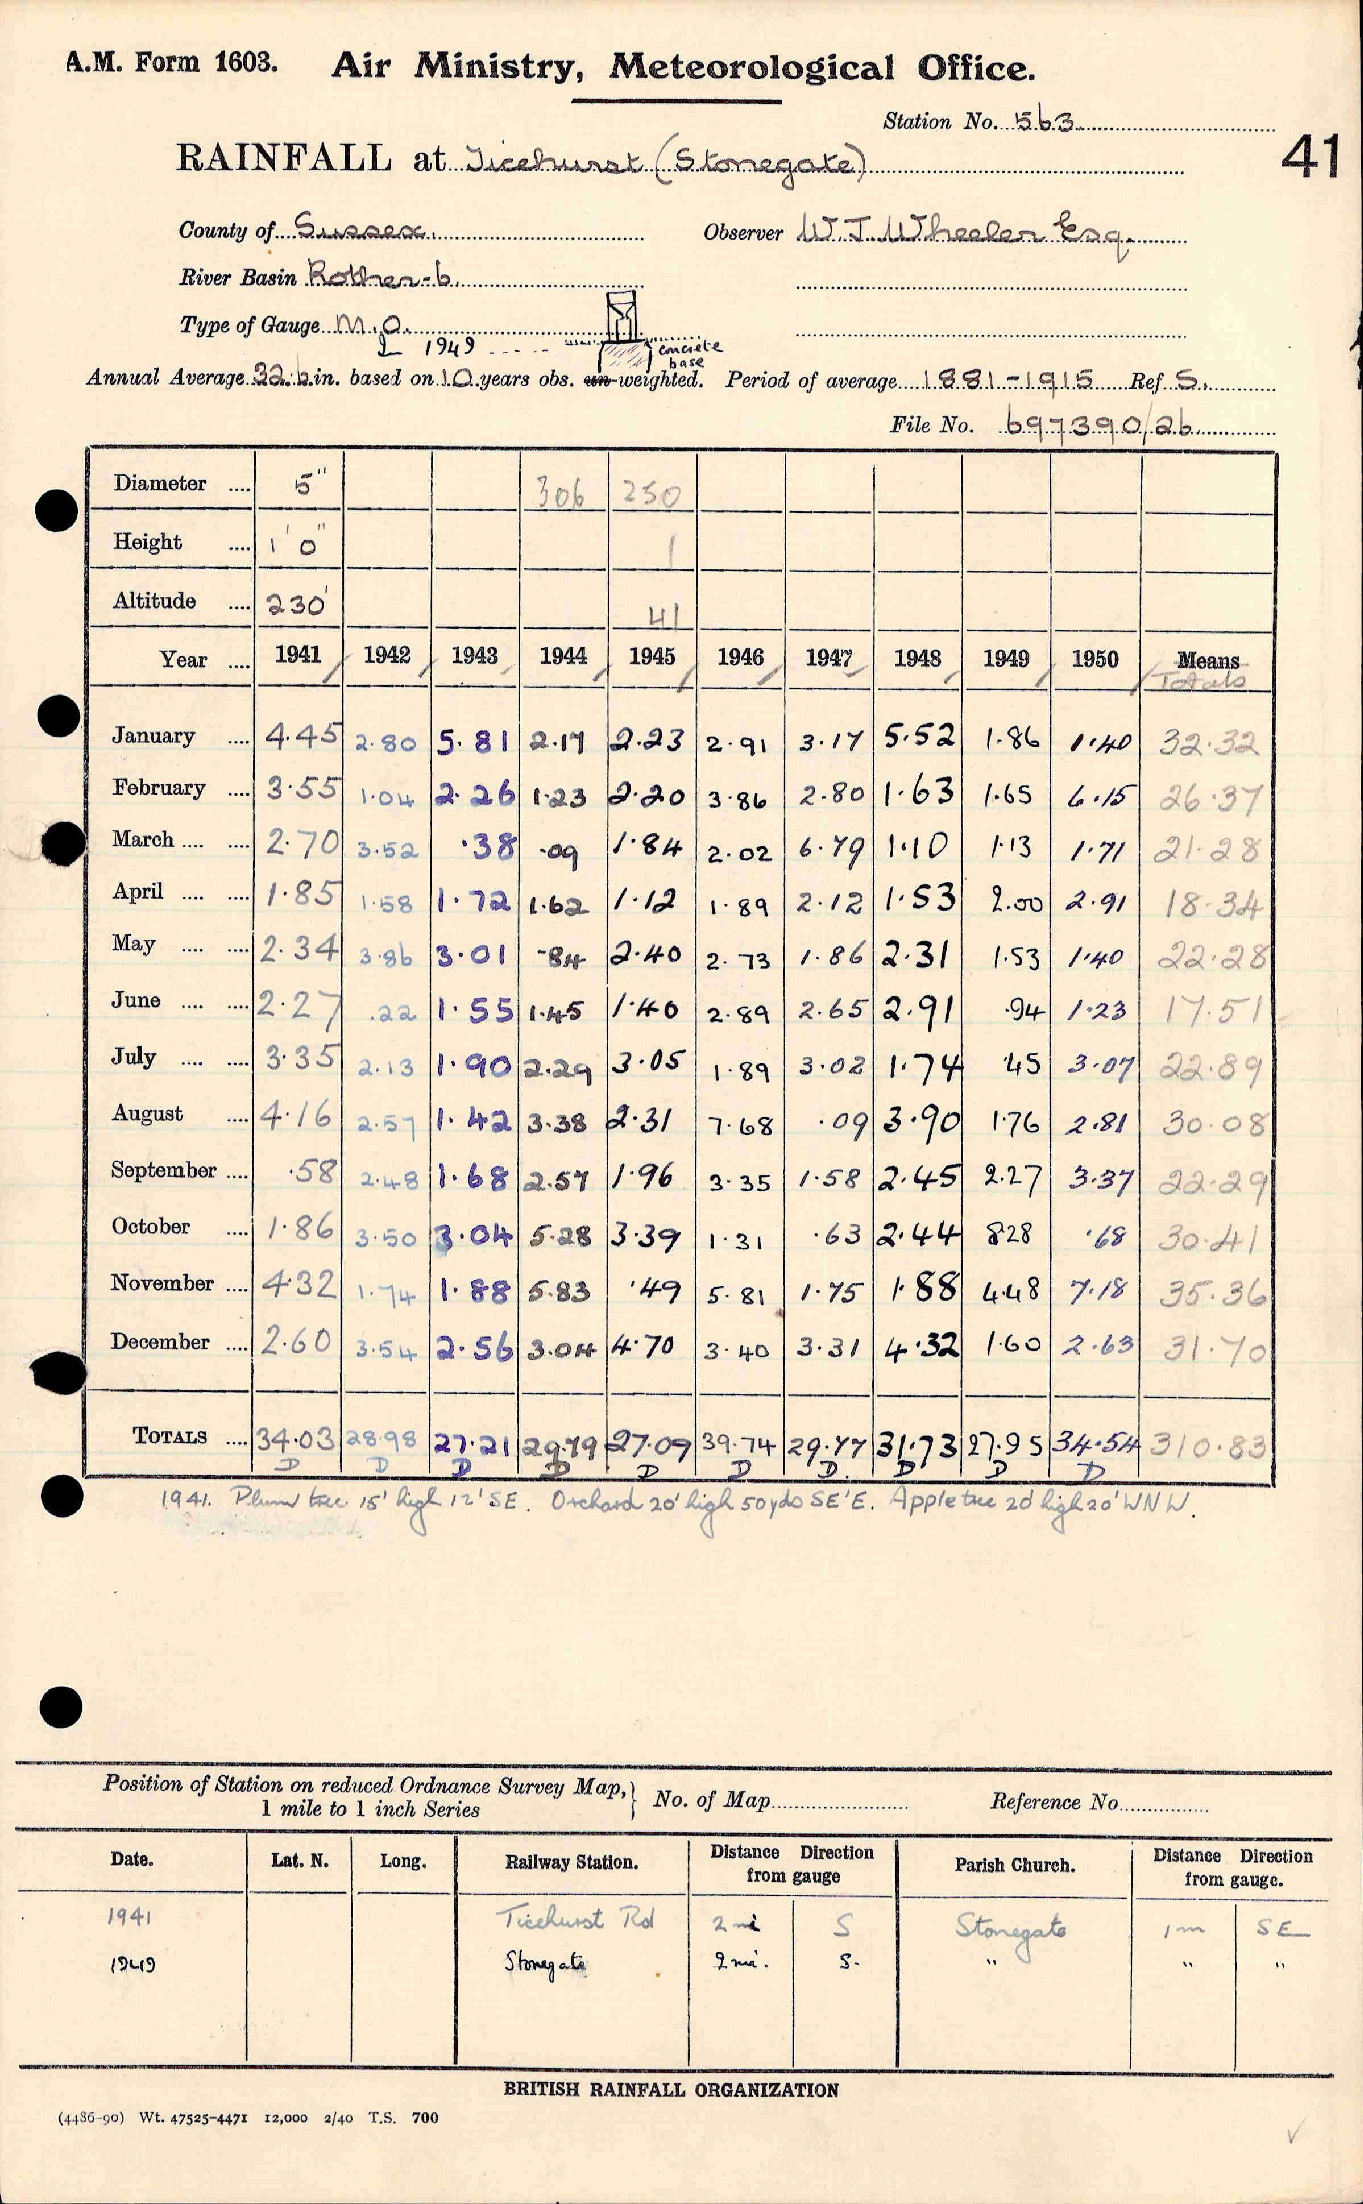 A.M. Form 1603. Air Ministry, Meteorological Office.
Station No. 563
41
RAINFALL at Ticehurst (Stonegate)
County of Sussex. Observer W. J. Wheeler Esq.
River Basin Rother-6.
Type of Gauge M.O.
1949 ..... concrete base
Annual Average 32.6 in. based on 10 years obs. un-weighted. Period of average 1881-1915 Ref S.
File No. 697390/26
Diameter .... 5" 306 250
Height .... 1' 0" 1
Altitude .... 230' 41
Year .... 1941 1942 1943 1944 1945 1946 1947 1948 1949 1950 Means
Totals
January .... 4.45 2.80 5.81 2.17 2.23 2.91 3.17 5.52 1.86 1.40 32.32
February .... 3.55 1.04 2.26 1.23 2.20 3.86 2.80 1.63 1.65 6.15 26.37
March .... .... 2.70 3.52 .38 .09 1.84 2.02 6.79 1.10 1.13 1.71 21.28
April .... .... 1.85 1.58 1.72 1.62 1.12 1.89 2.12 1.53 2.00 2.91 18.34
May .... .... 2.34 3.86 3.01 .84 2.40 2.73 1.86 2.31 1.53 1.40 22.28
June .... .... 2.27 .22 1.55 1.45 1.40 2.89 2.65 2.91 .94 1.23 17.51
July .... .... 3.35 2.13 1.90 2.29 3.05 1.89 3.02 1.74 .45 3.07 22.89
August .... 4.16 2.57 1.42 3.38 2.31 7.68 .09 3.90 1.76 2.81 30.08
September .... .58 2.48 1.68 2.57 1.96 3.35 1.58 2.45 2.27 3.37 22.29
October .... 1.86 3.50 3.04 5.28 3.39 1.31 .63 2.44 8.28 .68 30.41
November .... 4.32 1.74 1.88 5.83 .49 5.81 1.75 1.88 4.48 7.18 35.36
December .... 2.60 3.54 2.56 3.04 4.70 3.40 3.31 4.32 1.60 2.63 31.70
TOTALS .... 34.03 28.98 27.21 29.79 27.09 39.74 29.77 31.73 27.95 34.54 310.83
D D D D D D D. D D D
1941. Plum tree 15' high 12' SE. Orchard 20' high 50yds SE'E. Apple tree 20' high 20' WNW.
Position of Station on reduced Ordnance Survey Map,} No. of Map Reference No.
1 mile to 1 inch Series
Date. Lat. N. Long. Railway Station. Distance Direction from gauge Parish Church. Distance Direction from gauge.
1941 Ticehurst Rd 2 mi S Stonegate 1 m SE
1949 Stonegate 2 mi. S. " " "
BRITISH RAINFALL ORGANIZATION
(4486-90) Wt. 47525-4471 12,000 2/40 T.S. 700